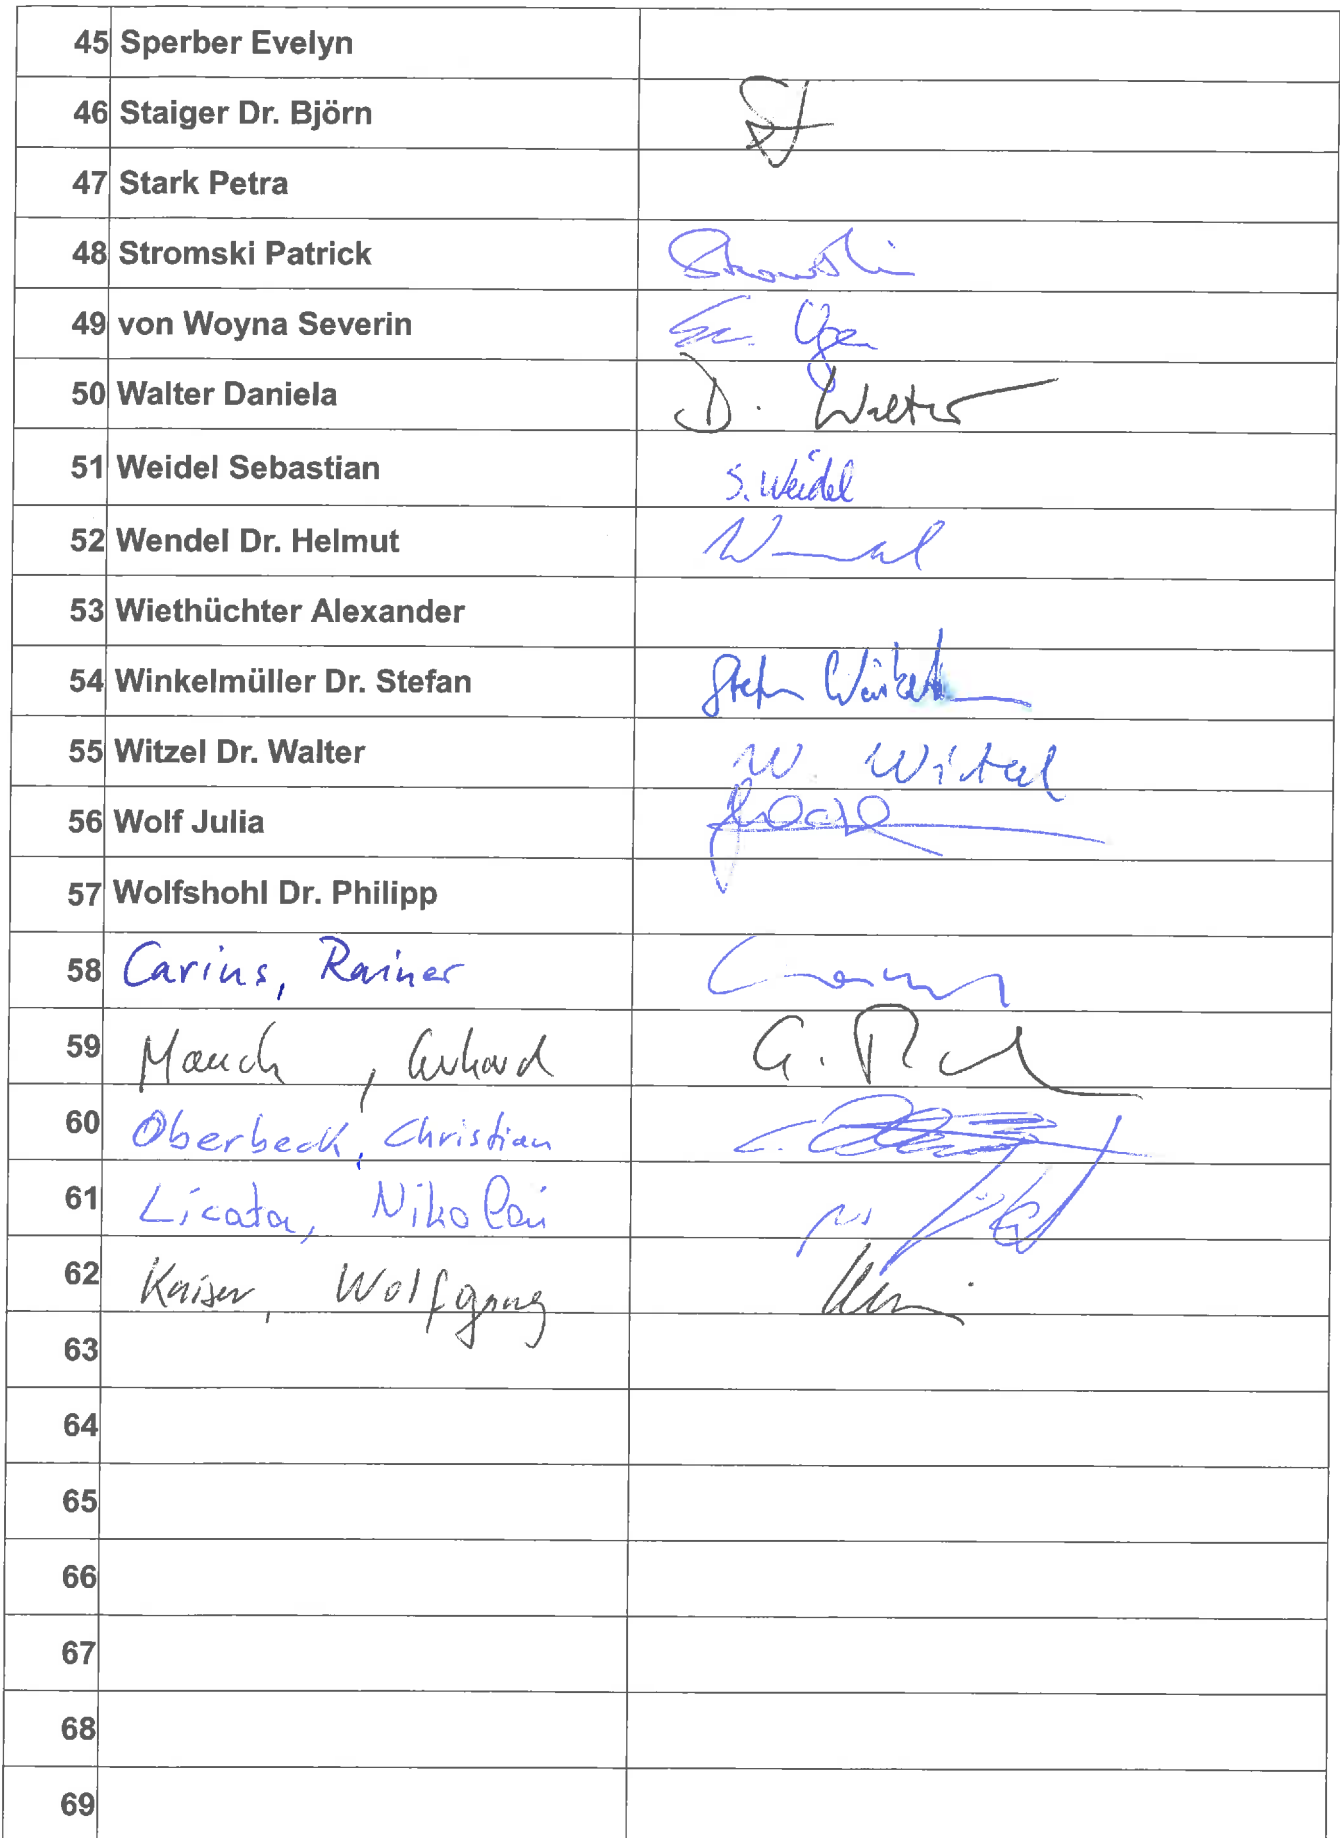 45 Sperber Evelyn
46 Staiger Dr. Björn
47 Stark Petra
48 Stromski Patrick
49 von Woyna Severin
50 Walter Daniela D. Walter
51 Weidel Sebastian S. Weidel
52 Wendel Dr. Helmut
53 Wiethüchter Alexander
54 Winkelmüller Dr. Stefan Stefan
55 Witzel Dr. Walter W. Witzel
56 Wolf Julia
57 Wolfshohl Dr. Philipp
58 Carius, Rainer
59 Mauch, Gerhard G.
60 Oberbeck, Christian
61 Licata, Nikolai
62 Kaiser, Wolfgang
63
64
65
66
67
68
69